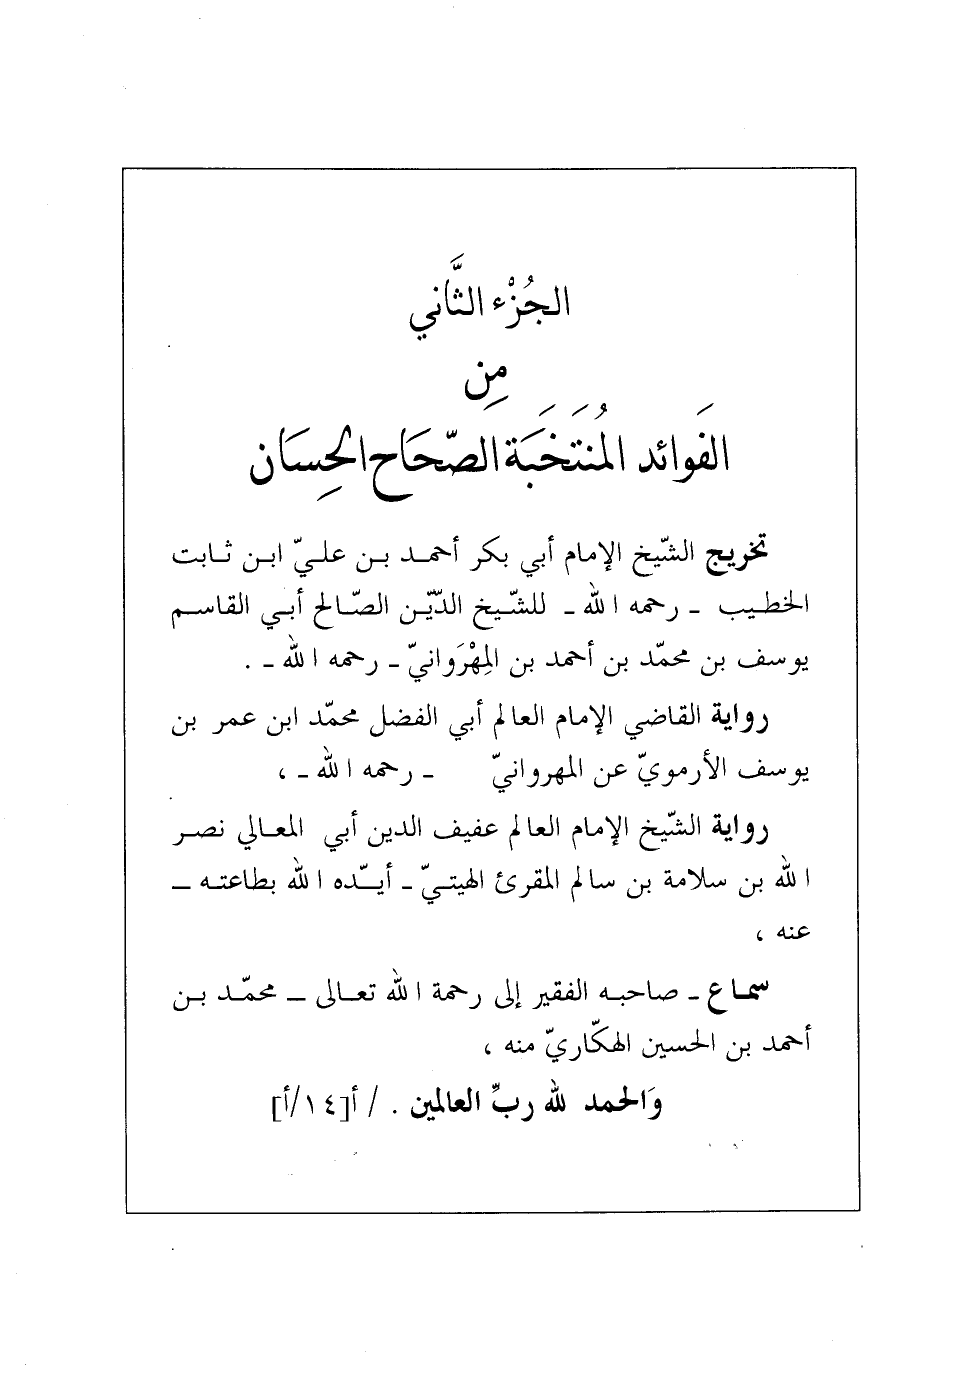 الجُزْء الثَّاني
مِن
الفَوائد المُنتَخَبَة الصّحَاح الحِسَان
تخريج الشّيخ الإمام أبي بكر أحمد بن عليّ ابن ثابت
الخطيب - رحمه الله - للشّيخ الدّيّن الصّالح أبي القاسم
يوسف بن محمّد بن أحمد بن المِهْرَوانيّ - رحمه الله - .
رواية القاضي الإمام العالم أبي الفضل محمّد ابن عمر بن
يوسف الأرمويّ عن المهروانيّ - رحمه الله - ،
رواية الشّيخ الإمام العالم عفيف الدين أبي المعالي نصر
الله بن سلامة بن سالم المقرئ الهيتيّ - أيّده الله بطاعته -
عنه ،
سماع - صاحبه الفقير إلى رحمة الله تعالى - محمّد بن
أحمد بن الحسين الهكّاريّ منه ،
وَالحمد لله ربِّ العالمين . / أ[١٤/أ]